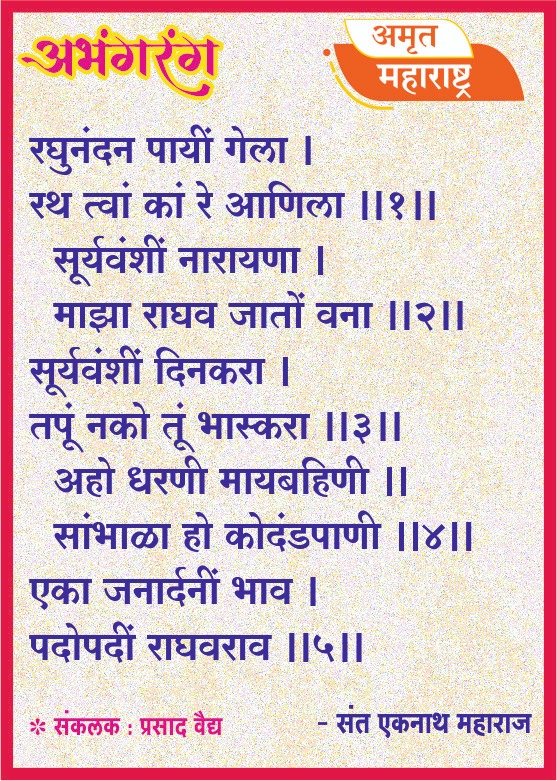 अभंगरंग
अमृत
महाराष्ट्र
रघुनंदन पायीं गेला ।
रथ त्वां कां रे आणिला ॥१॥
सूर्यवंशीं नारायणा ।
माझा राघव जातों वना ॥२॥
सूर्यवंशीं दिनकरा ।
तपूं नको तूं भास्करा ॥३॥
अहो धरणी मायबहिणी ॥
सांभाळा हो कोदंडपाणी ॥४॥
एका जनार्दनीं भाव ।
पदोपदीं राघवराव ॥५॥
* संकलक : प्रसाद वैद्य
- संत एकनाथ महाराज